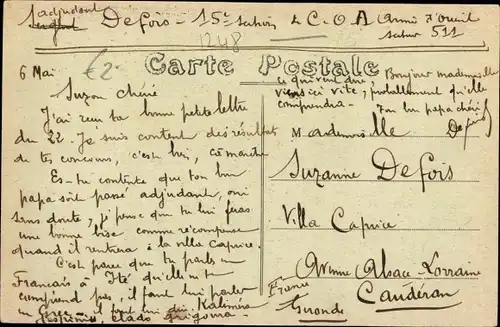 adjudant Defois - 15e section C.O.A Armée d'Orient
secteur 511
1248
6 Mai €2-
Carte Postale
Suzon chérie
J'ai reçu ta bonne petite lettre
du 22. Je suis content des résultats
de tes concours, c'est bien,
Es-tu contente que ton bon
papa soit passé adjudant, oui
sans doute, je pense que tu lui feras
une bonne bise comme récompense
quand il rentrera à la villa Caprice.
C'est parce que tu parles
Français à qu'elle ne te
comprend pas, il faut lui parler
en Grec - il faut lui dire Kaliméra
élado grigora
Bonjour mademoiselle
ce qui veut dire
viens ici vite, probablement qu'elle
comprendra - Ton papa chéri
Defois
Mademoiselle
Suzanne Defois
Villa Caprice
Avenue Alsace-Lorraine
Caudéran
France Gironde